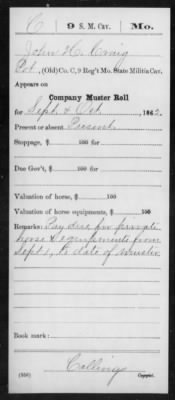 C 9 S. M. Cav. Mo.
John H. Craig
Pvt., (Old) Co. C, 9 Reg't Mo. State Militia Cav.
Appears on
Company Muster Roll
for Sept & Oct, 1862.
Present or absent Present
Stoppage, $ 100 for
Due Gov't, $ 100 for
Valuation of horse, $ 100
Valuation of horse equipments, $ 100
Remarks: Pay due for private
horse & equipments from
Sept 1, to date of muster
Book mark:
Collings
(556) Copyist.